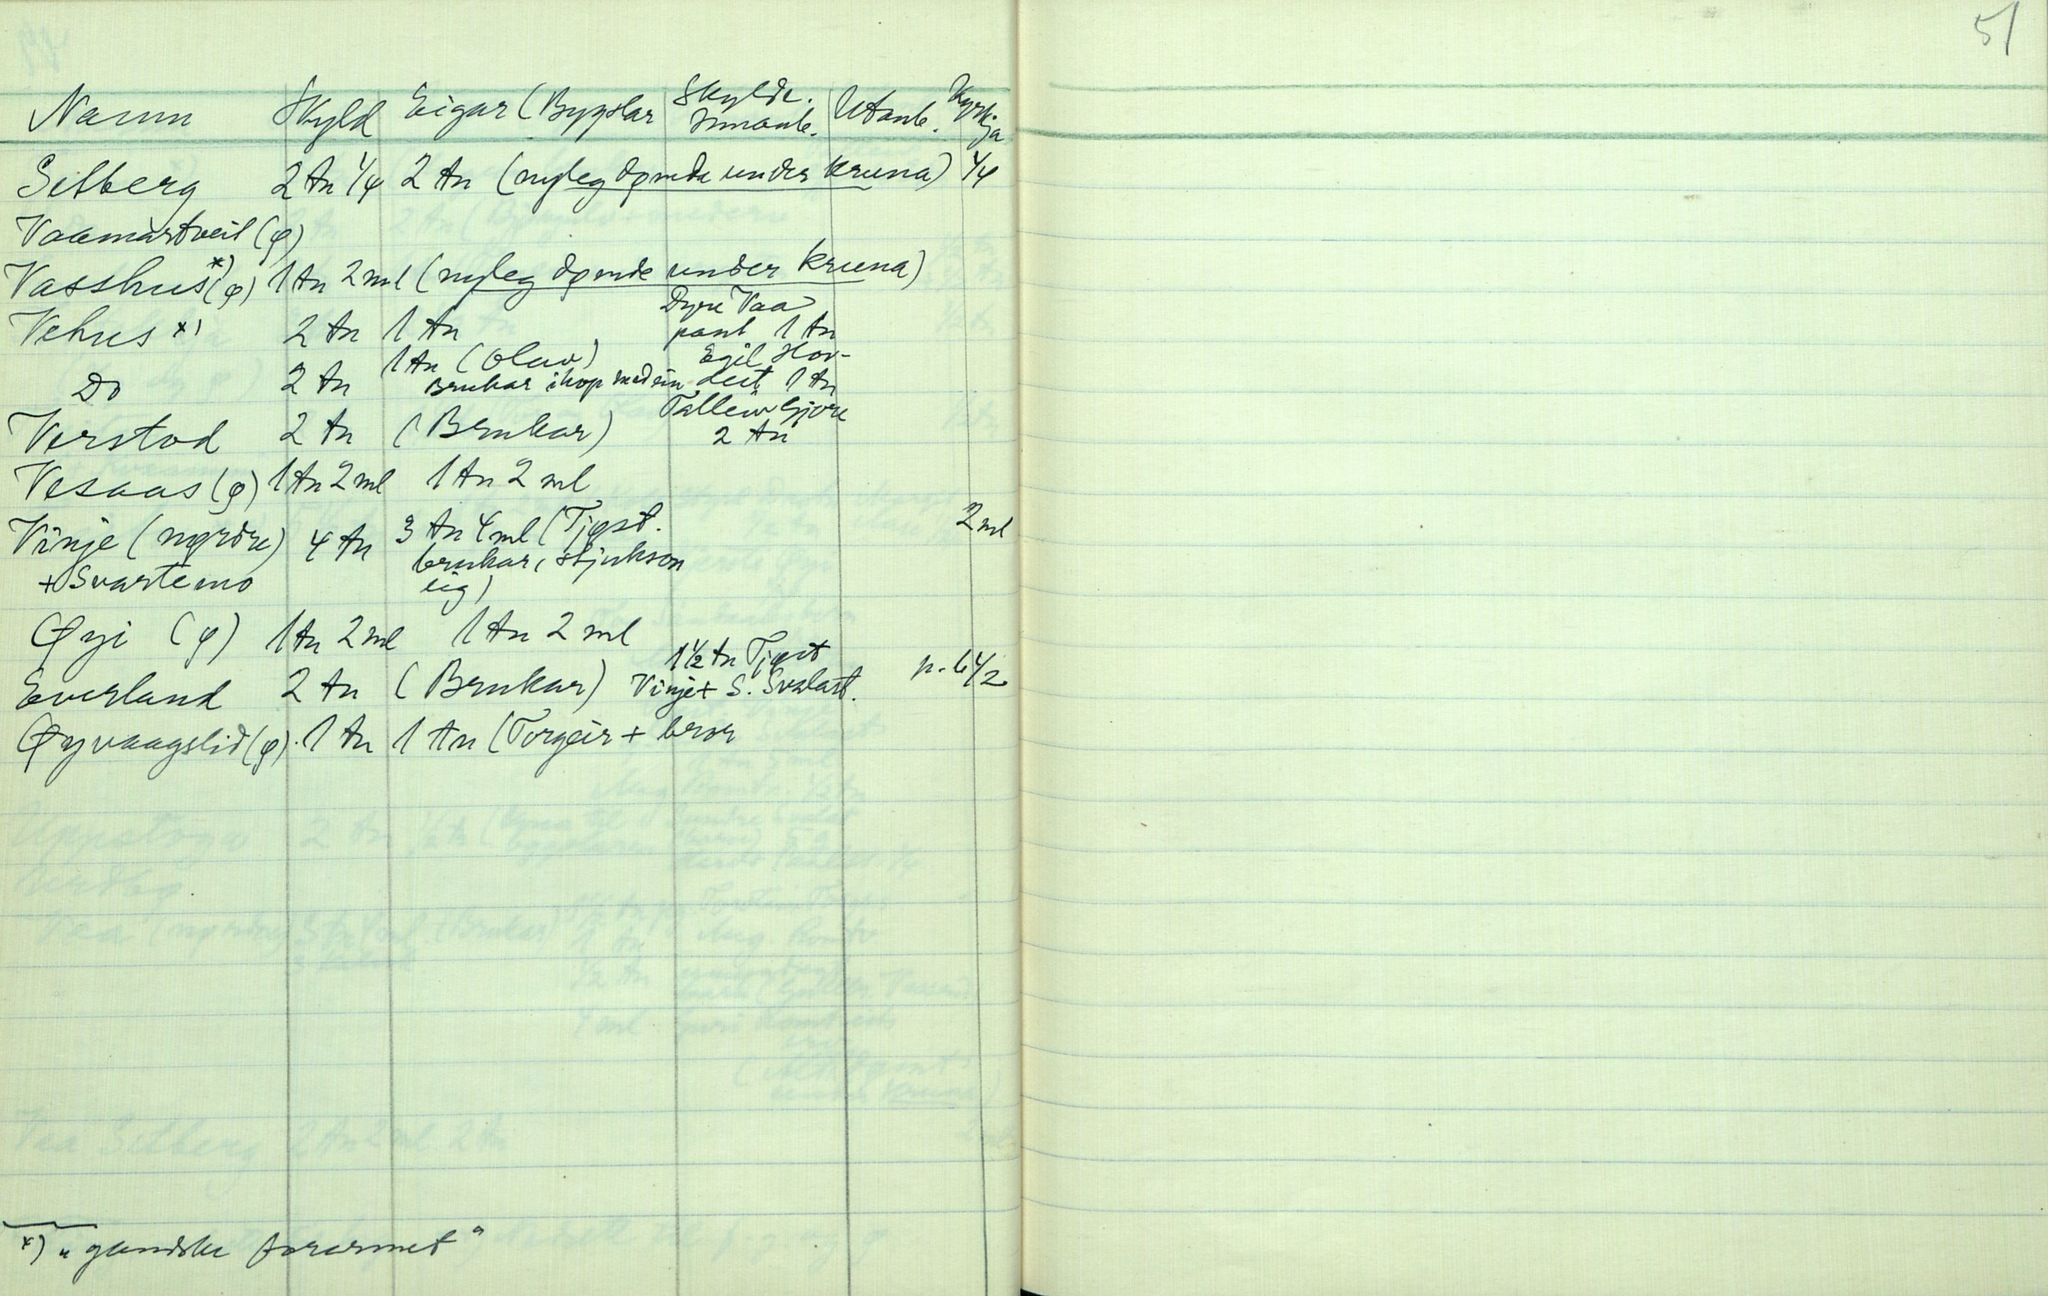 51
Namn Skyld Eigar (Bygslar Skylde. Innanb. Utanb. Kyrkja
Setberg 2 tn 1/4 2 tn (nyleg dømde under kruna) 1/4
Vaamartveit (ø)
Vasshus *) (ø) 1 tn 2 ml (nyleg dømde under kruna)
Vehus x) 2 tn 1 tn Dyre Vaa
pant 1 tn
Do 2 tn 1 tn (Olav) Egil Hov-
Brukar ihop med ein deit 1 tn
Verstad 2 tn (Brukar) Talleiv Gjore
2 tn
Vesaas (ø) 1 tn 2 ml 1 tn 2 ml
Vinje (nørdre) 4 tn 3 tn 4 ml (Tjøst. 2 ml
+ Svartemo brukar,
eig)
Øyi (ø) 1 tn 2 ml 1 tn 2 ml
Everland 2 tn (Brukar) 1 1/2 tn Tjøst
Vinje + S. Svalast. 1/2
Øyvaagslid (ø) 1 tn 1 tn (Torgeir + bror
x) "gandske forarmet"